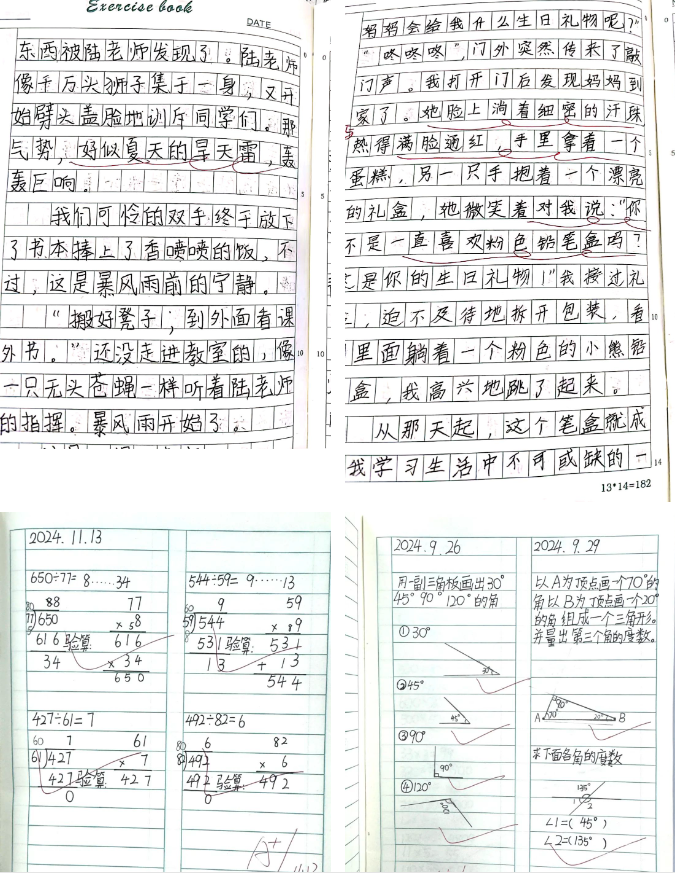 Exercise book
DATE
东西被陆老师发现了。陆老师
像千万头狮子集于一身，又开
始劈头盖脸地训斥同学们。那
气势，好似夏天的旱天雷，轰
轰巨响。
我们可怜的双手终于放下
了书本捧上了香喷喷的饭，不
过，这是暴风雨前的宁静。
“搬好凳子，到外面看课
外书。”还没走进教室的，像
一只无头苍蝇一样听着陆老师
的指挥。暴风雨开始了。
妈妈会给我什么生日礼物呢？”
“咚咚咚”，门外突然传来了敲
门声。我打开门后发现妈妈到
家了。她脸上淌着细密的汗珠
热得满脸通红，手里拿着一个
蛋糕，另一只手抱着一个漂亮
的礼盒，她微笑着对我说：“你
不是一直喜欢粉色铅笔盒吗？
这是你的生日礼物！”我接过礼
，迫不及待地拆开包装，看
里面躺着一个粉色的小熊铅
盒，我高兴地跳了起来。
从那天起，这个笔盒就成
我学习生活中不可或缺的一
13*14=182
2024.11.13
650÷77= 8……34
544÷59= 9……13
80 88 77
77 650 × 8
616 验算: 616
34 + 34
650
60 9 59
59 544 × 9
531 验算: 531
13 + 13
544
427÷61= 7
492÷82= 6
60 7 61
61 427 × 7
427 验算: 427
0
80 6 82
82 492 × 6
492 验算: 492
0
A+
11.13
2024.9.26
用一副三角板画出30°
45° 90° 120°的角
①30°
30°
②45°
45°
③90°
90°
④120°
120°
2024.9.29
以A为顶点画一个70°的
角以B为顶点画一个20°
的角组成一个三角形。
并量出第三个角的度数。
90°
A 70° 20° B
求下面各角的度数
135°
1 2
∠1=( 45°)
∠2=(135°)